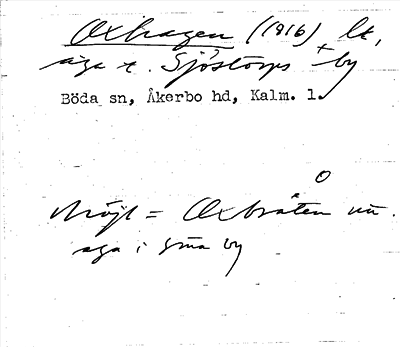 Oxhagen (1916) lt,
äga t. Sjöstorps by
Böda sn, Åkerbo hd, Kalm. l.
Möjl = Oxbråten nu.
äga i sma by